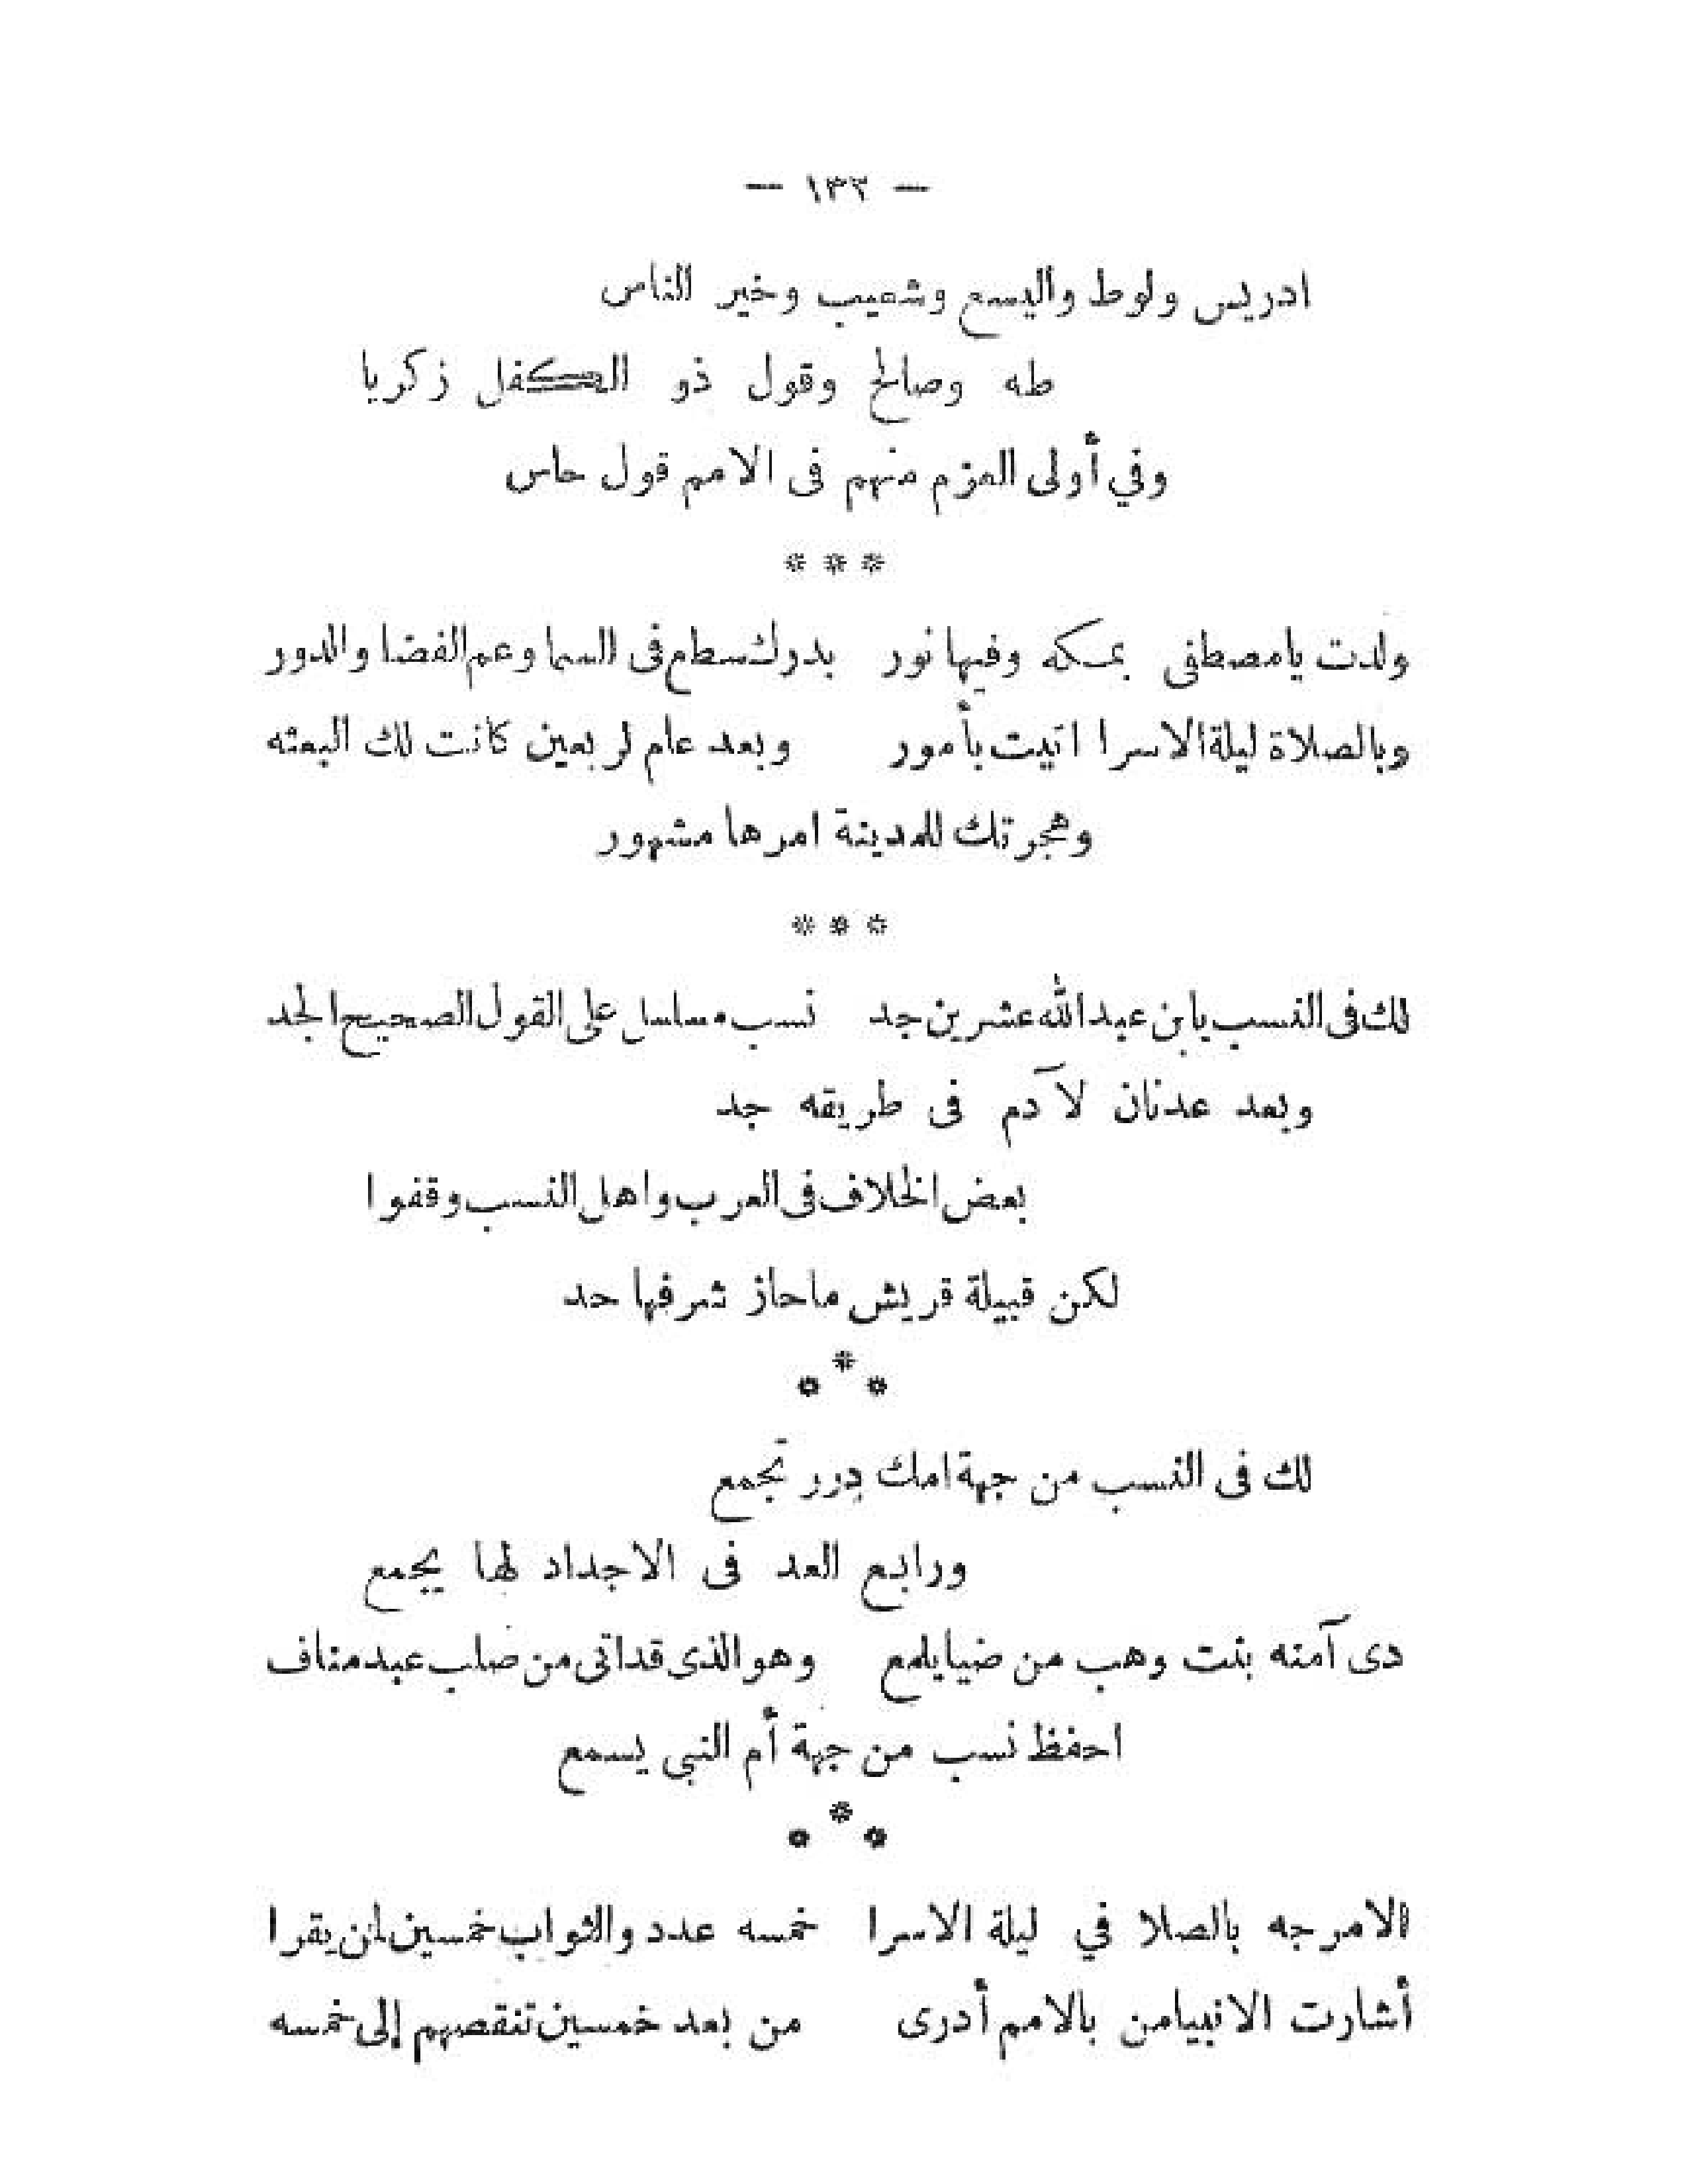 — ١٣٢ —
ادريس ولوط واليسع وشعيب وخير الناس
طه وصالح وقول ذو الكفل زكريا
وفي أولى العزم منهم فى الامم قول حاس
* * *
ولدت يامصطفى بمكه وفيها نور بدرك سطع فى السما وعم الفضا والدور
وبالصلاة ليلة الاسرا اتيت بأمور وبعد عام لربعين كانت لك البعثه
وهجرتك للمدينة امرها مشهور
* * *
لك فى النسب يابن عبد الله عشرين جد نسب مسلسل على القول الصحيح الجد
وبعد عدنان لآدم فى طريقه جد
بعض الخلاف فى العرب واهل النسب وقفوا
لكن قبيلة قريش ماحاز شرفها حد
* * *
لك فى النسب من جهة امك دِرر تجمع
ورابع العد فى الاجداد لها يجمع
دى آمنه بنت وهب من ضيايلمع وهو الذى قداتى من صلب عبد مناف
احفظ نسب من جهة أم النبى يسمع
* * *
الامر جه بالصلا في ليلة الاسرا خمسه عدد والثواب خمسين لمن يقرا
أشارت الانبيا من بالامم أدرى من بعد خمسين تنقصهم إلى خمسه